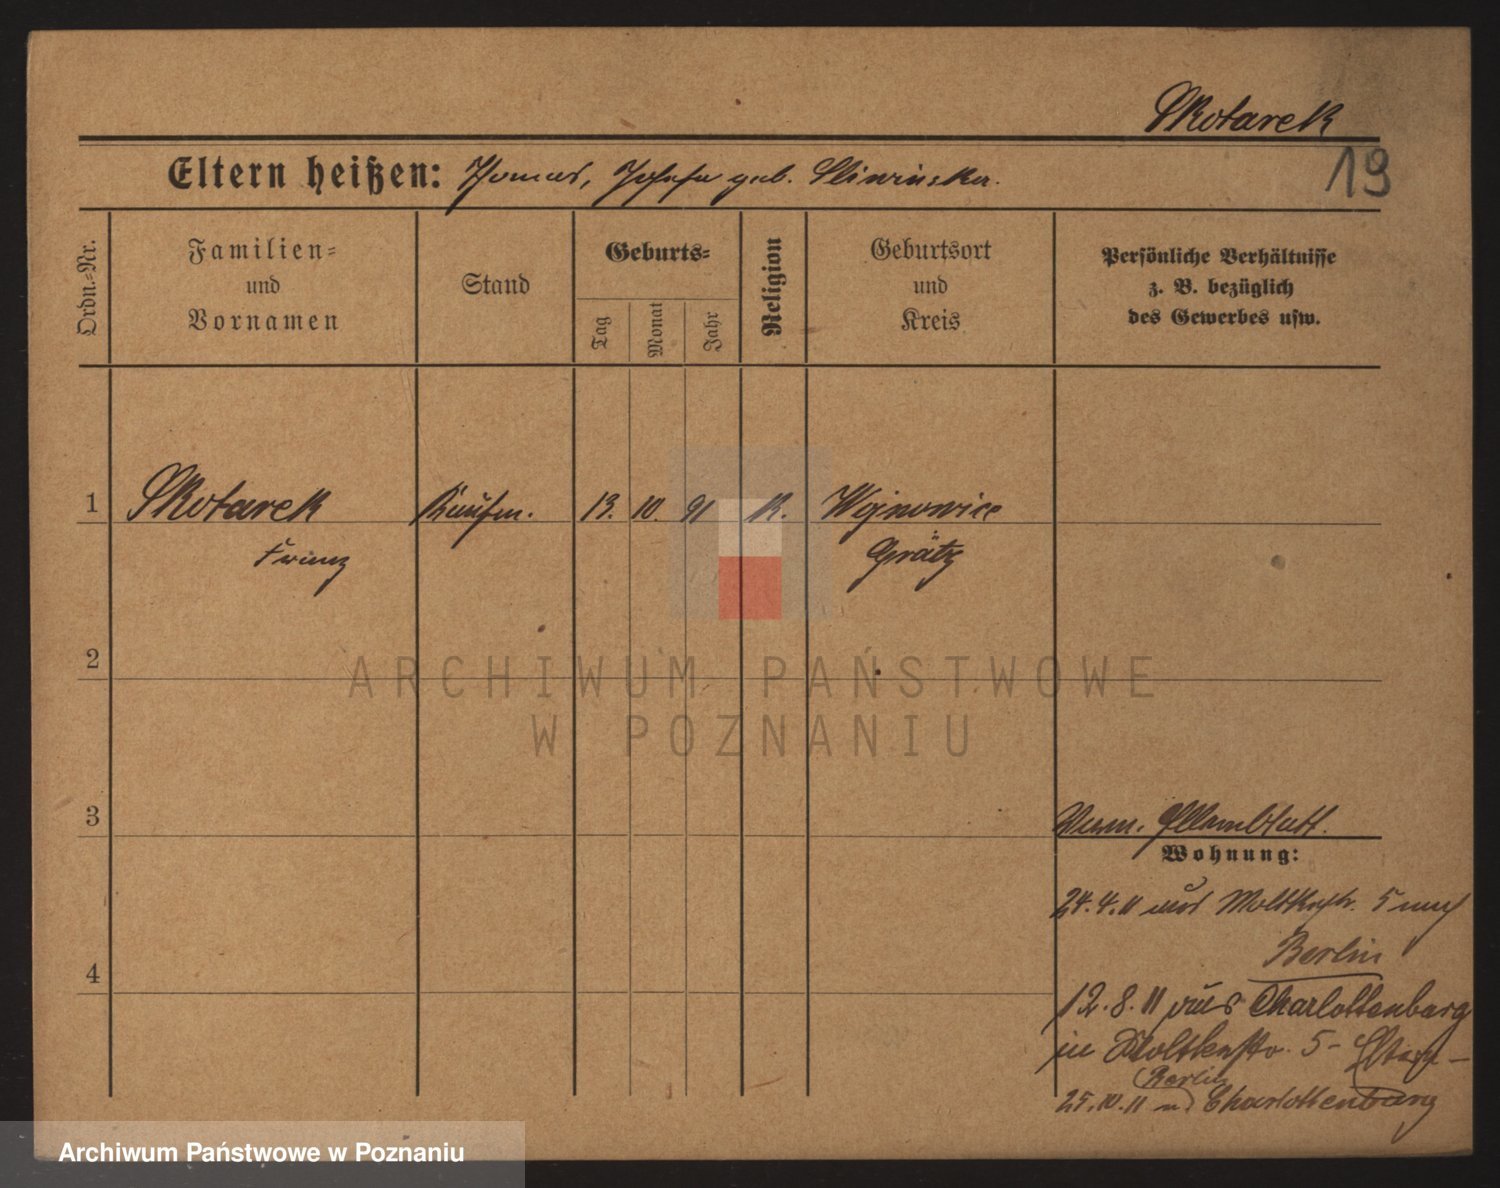 Skotarek
19
Eltern heißen: Thomas, Josefa geb. Sliwinska.
Ordn.-Nr.
Familien-
und
Vornamen
Stand
Geburts-
Tag
Monat
Jahr
Religion
Geburtsort
und
Kreis
Persönliche Verhältnisse
z. B. bezüglich
des Gewerbes usw.
1 Skotarek Kaufm. 13. 10. 91 K. Wojnowice
Franz Grätz
2
3
Verm. Elternblatt.
Wohnung:
24.4.11 aus Moltkestr. 5 nach
Berlin
4
12.8.11 aus Charlottenburg
in Moltkestr. 5 - Eltern -
Berlin
25.10.11 n. Charlottenburg
ARCHIWUM PAŃSTWOWE
W POZNANIU
Archiwum Państwowe w Poznaniu